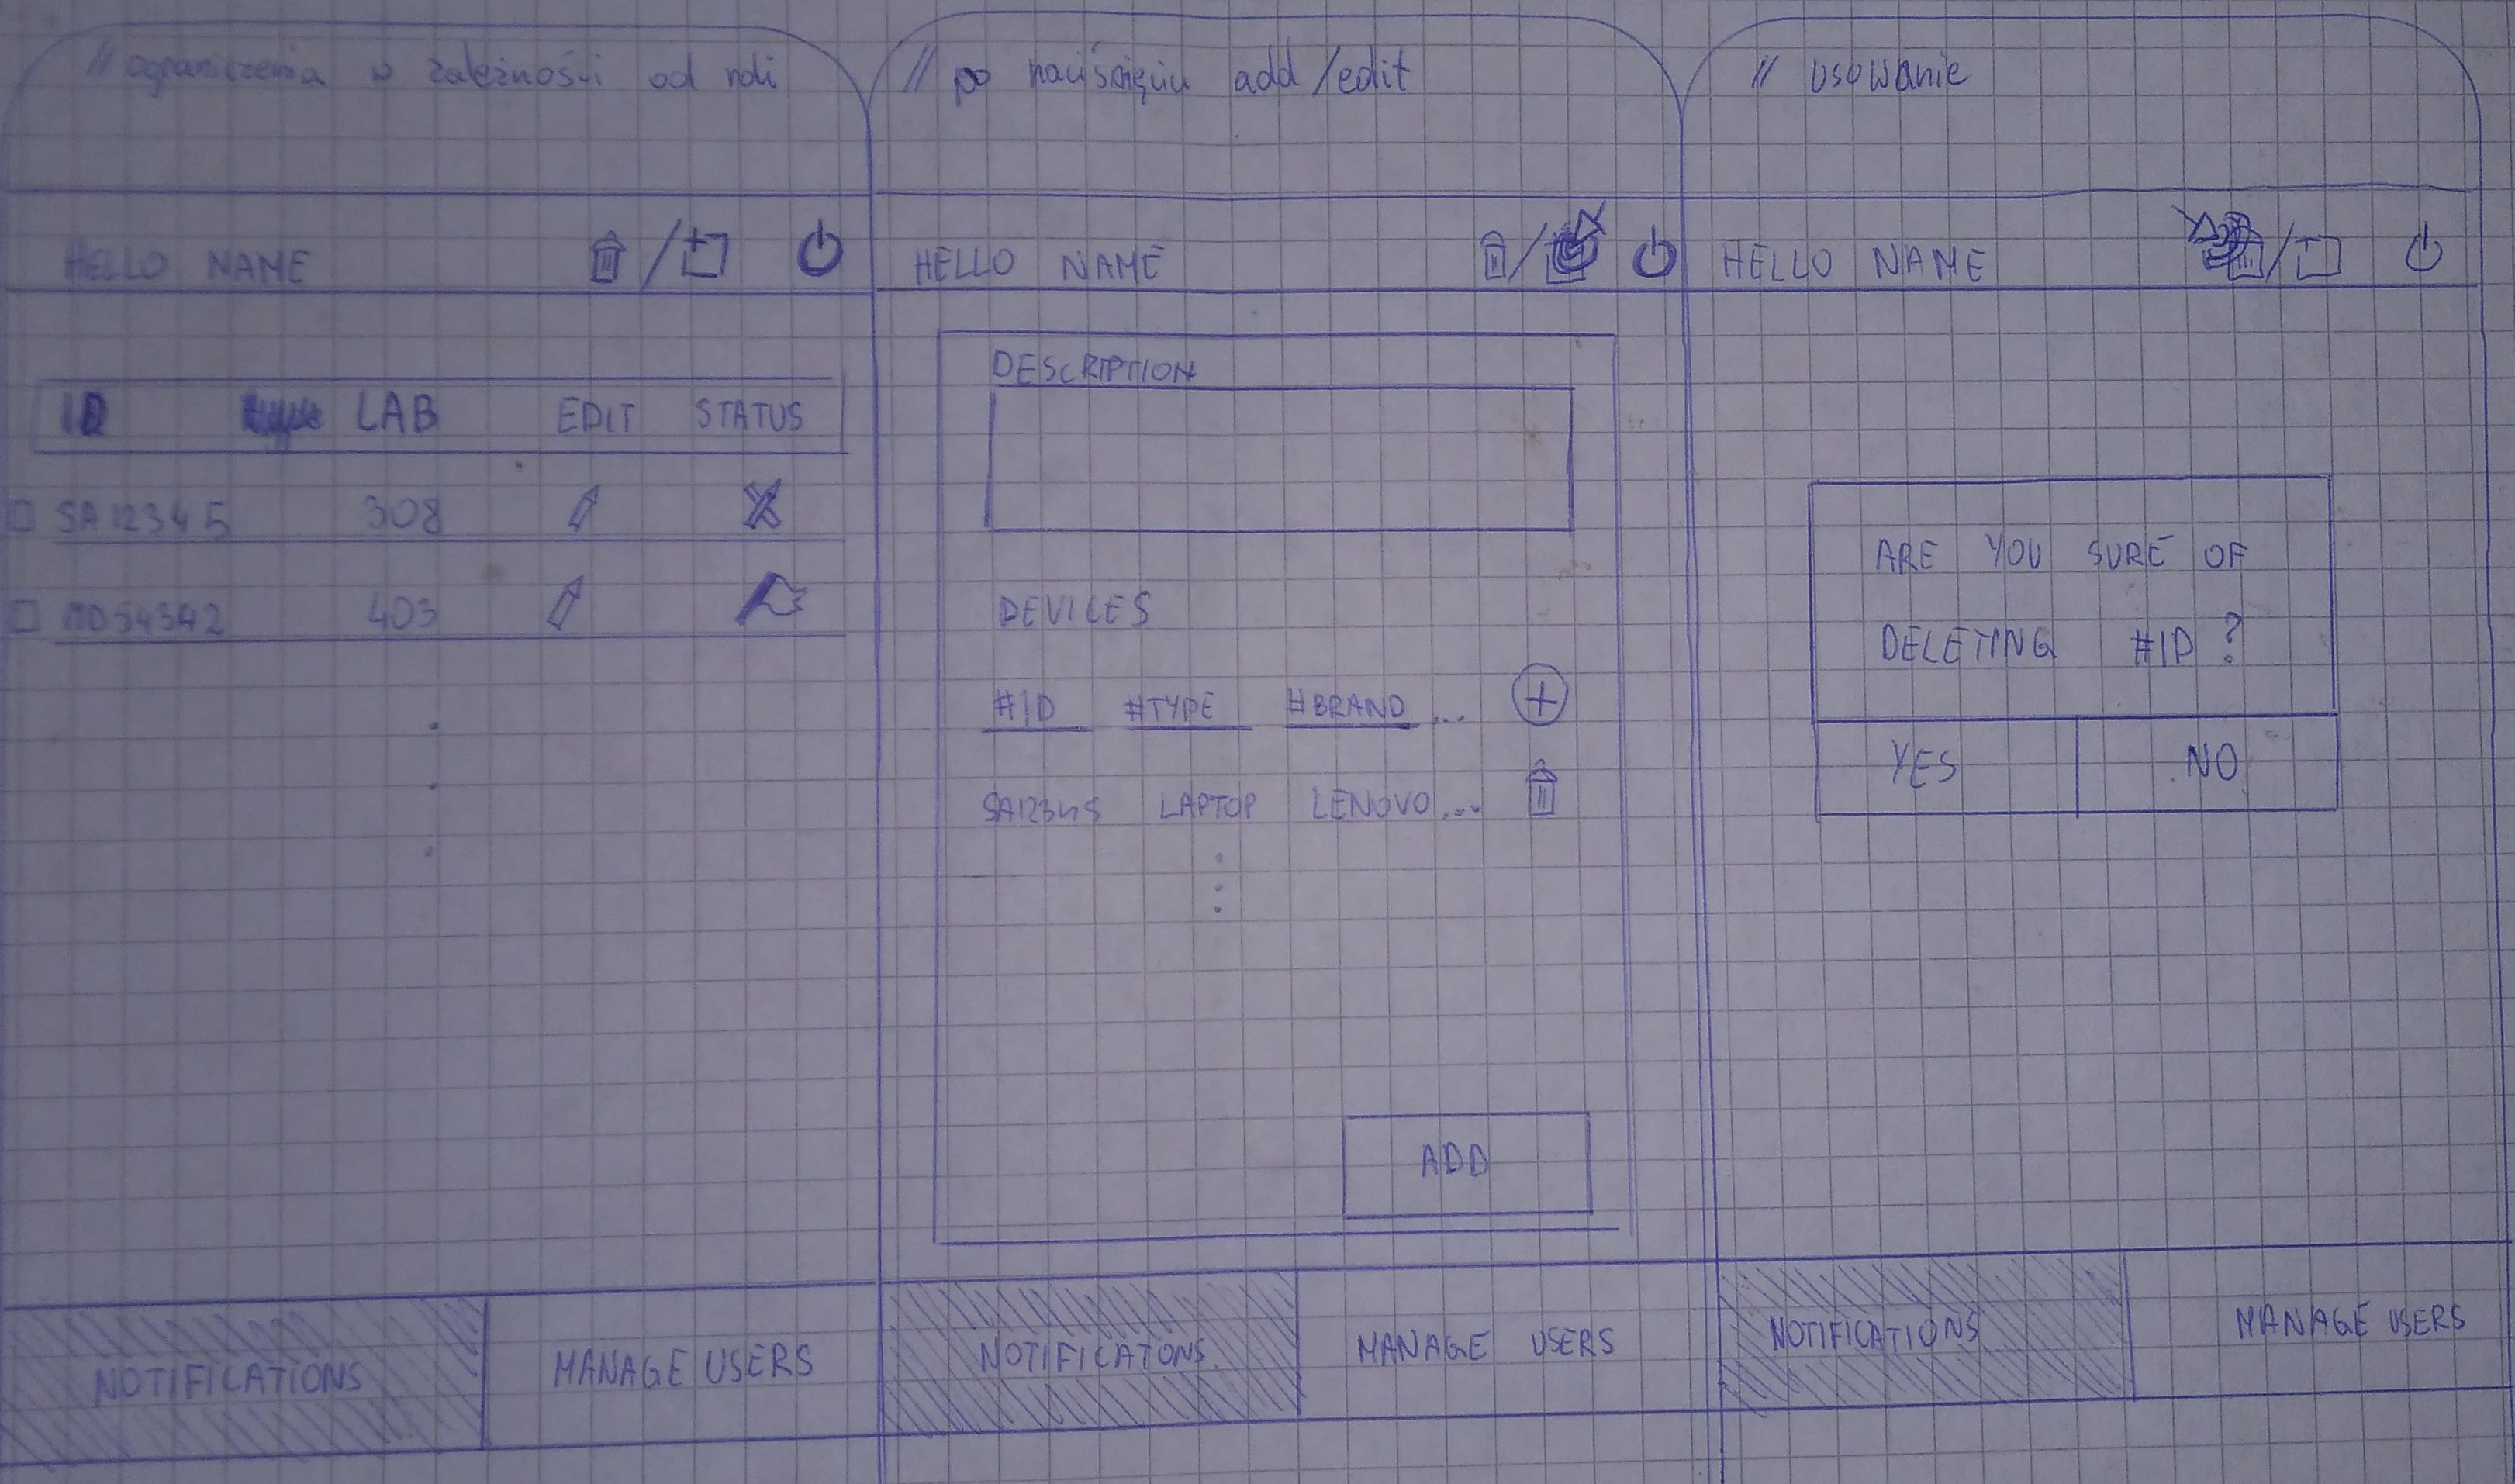 // ograniczenia w zależności od roli
HELLO NAME
ID LAB EDIT STATUS
SA12345 308
MD54342 403
NOTIFICATIONS MANAGE USERS
// po naciśnięciu add/edit
HELLO NAME
DESCRIPTION
DEVICES
#ID #TYPE #BRAND ...
SA12345 LAPTOP LENOVO ...
ADD
NOTIFICATONS MANAGE USERS
// usowanie
HELLO NAME
ARE YOU SURE OF
DELETING #ID ?
YES NO
NOTIFICATIONS MANAGE USERS